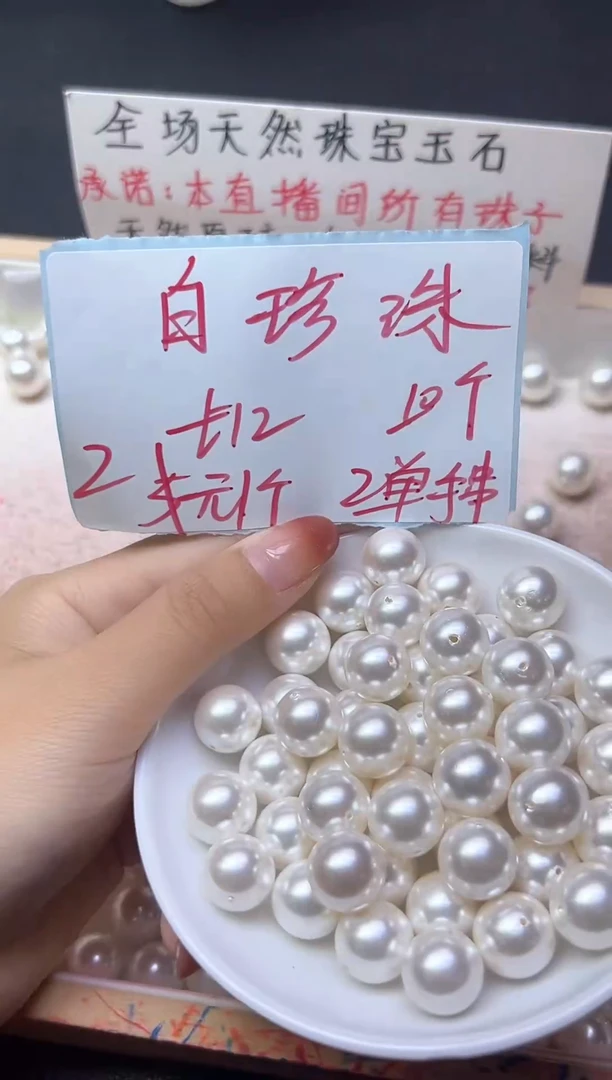 全场天然珠宝玉石
承诺:本直播间所有珠子
天然
料
白珍珠
长12 10个
2 米元1个 2单手串